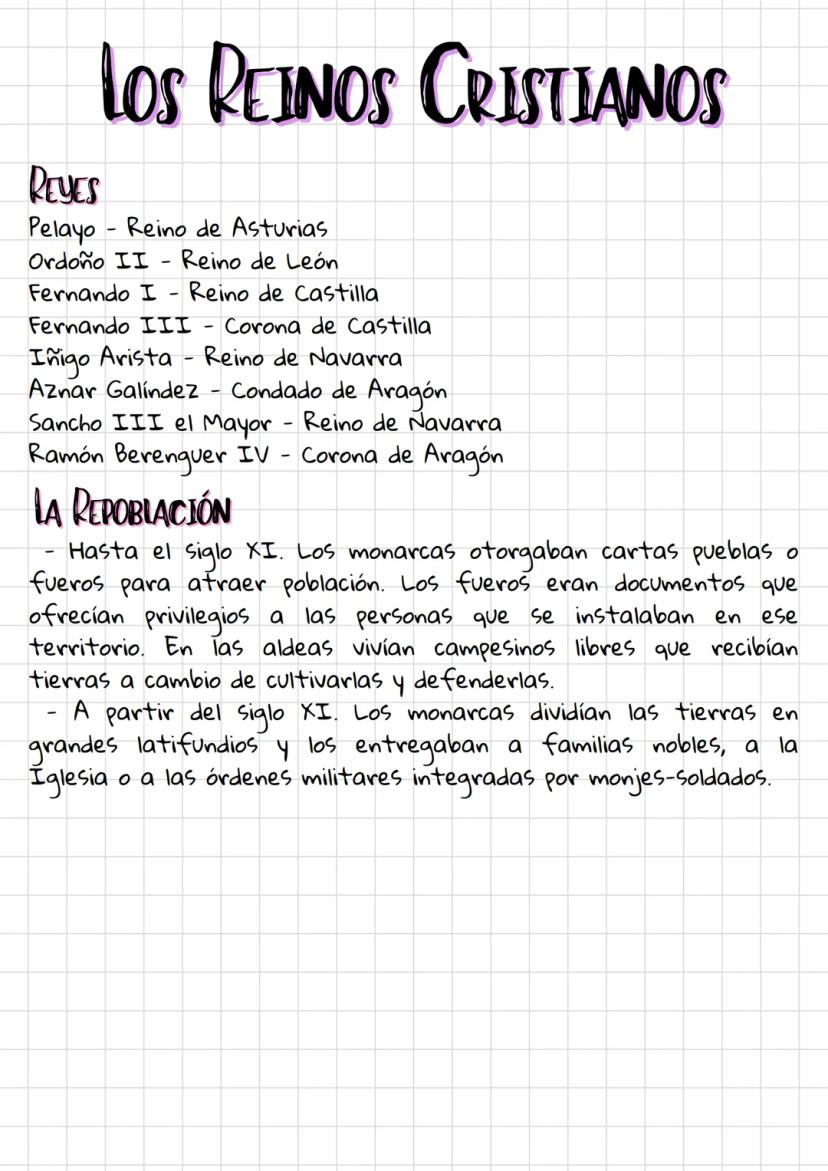 Los Reinos Cristianos
Reyes
Pelayo - Reino de Asturias
Ordoño II - Reino de León
Fernando I - Reino de Castilla
Fernando III - Corona de Castilla
Iñigo Arista - Reino de Navarra
Aznar Galíndez - Condado de Aragón
Sancho III el Mayor - Reino de Navarra
Ramón Berenguer IV - Corona de Aragón
La Repoblación
- Hasta el siglo XI. Los monarcas otorgaban cartas pueblas o
fueros para atraer población. Los fueros eran documentos que
ofrecían privilegios a las personas que se instalaban en ese
territorio. En las aldeas vivían campesinos libres que recibían
tierras a cambio de cultivarlas y defenderlas.
- A partir del siglo XI. Los monarcas dividían las tierras en
grandes latifundios y los entregaban a familias nobles, a la
Iglesia o a las órdenes militares integradas por monjes-soldados.